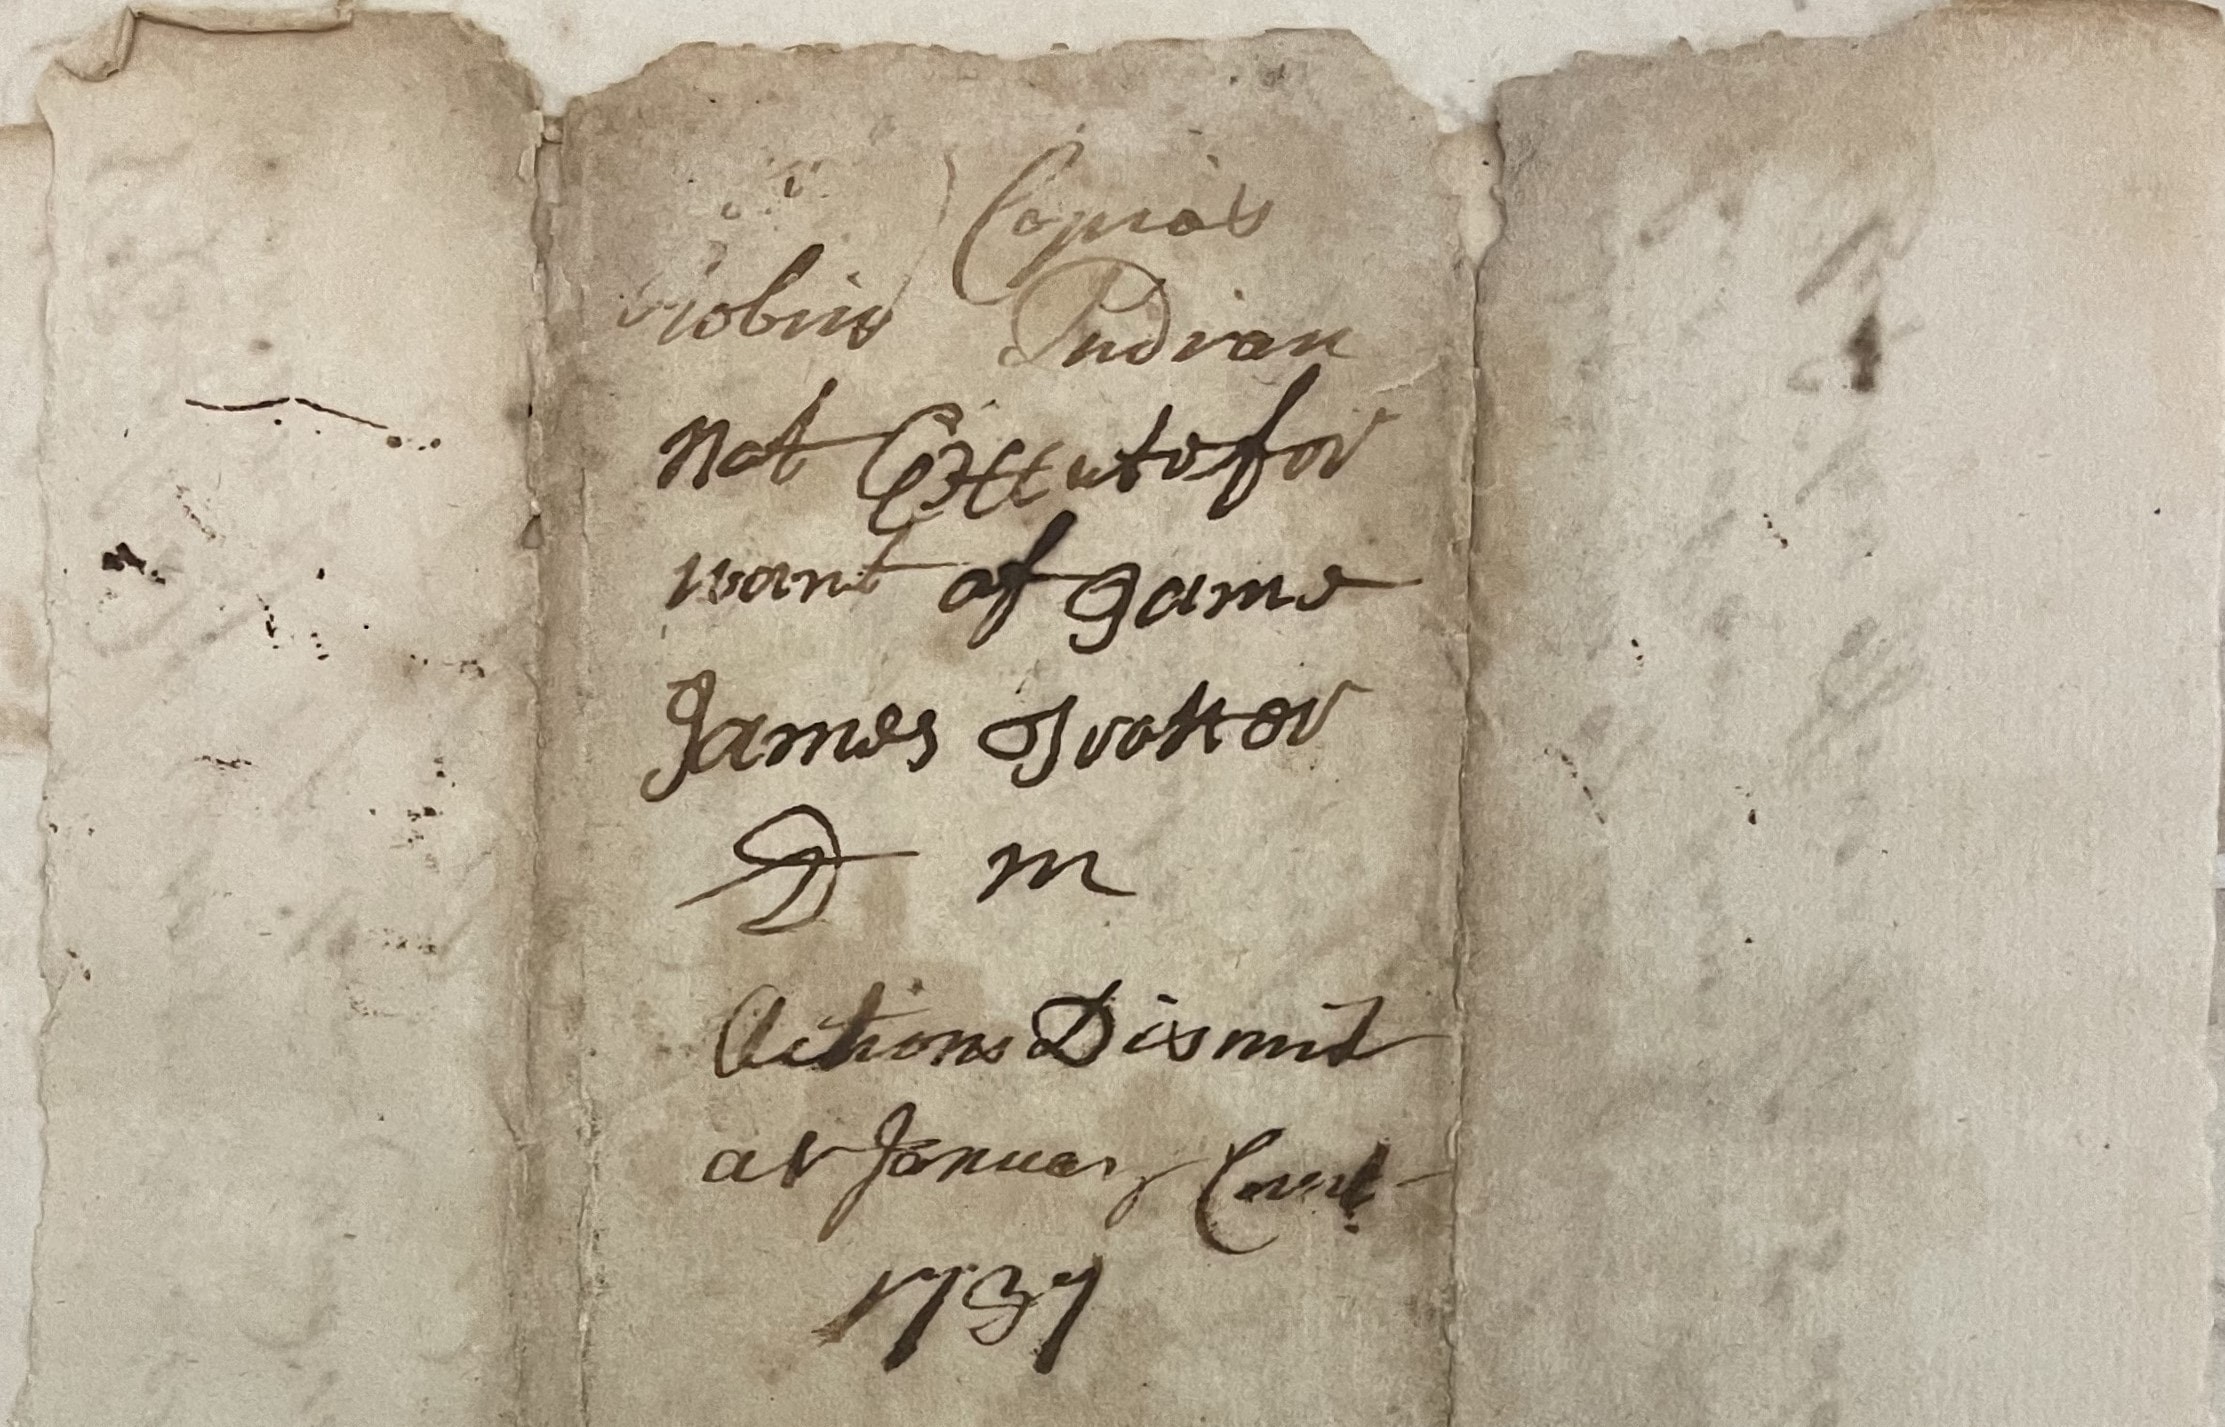 Capias
Robin Indian
Not Execute for
want of same
James Trotter
D m
Actions Dismit
at January Court
1737